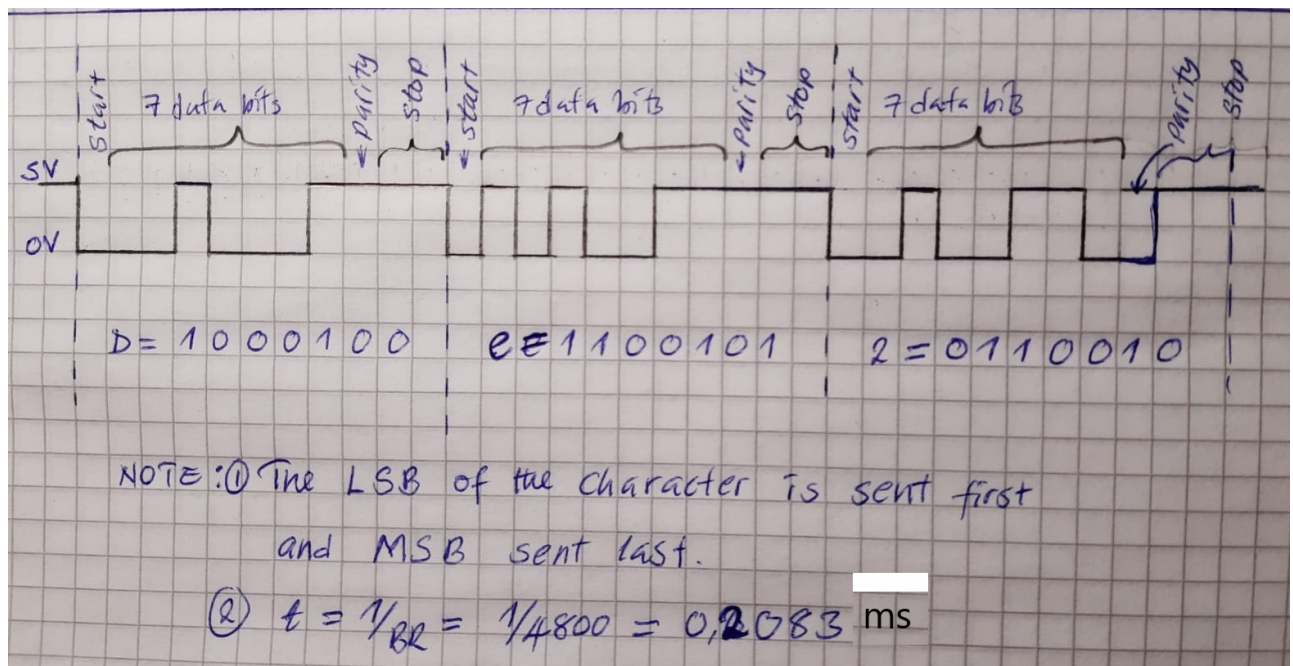 start 7 data bits parity stop start 7 data bits parity stop start 7 data bits parity stop
5V
0V
D = 1 0 0 0 1 0 0 e = 1 1 0 0 1 0 1 2 = 0 1 1 0 0 1 0
NOTE: ① The LSB of the character is sent first
and MSB sent last.
② t = 1/BR = 1/4800 = 0,2083 ms